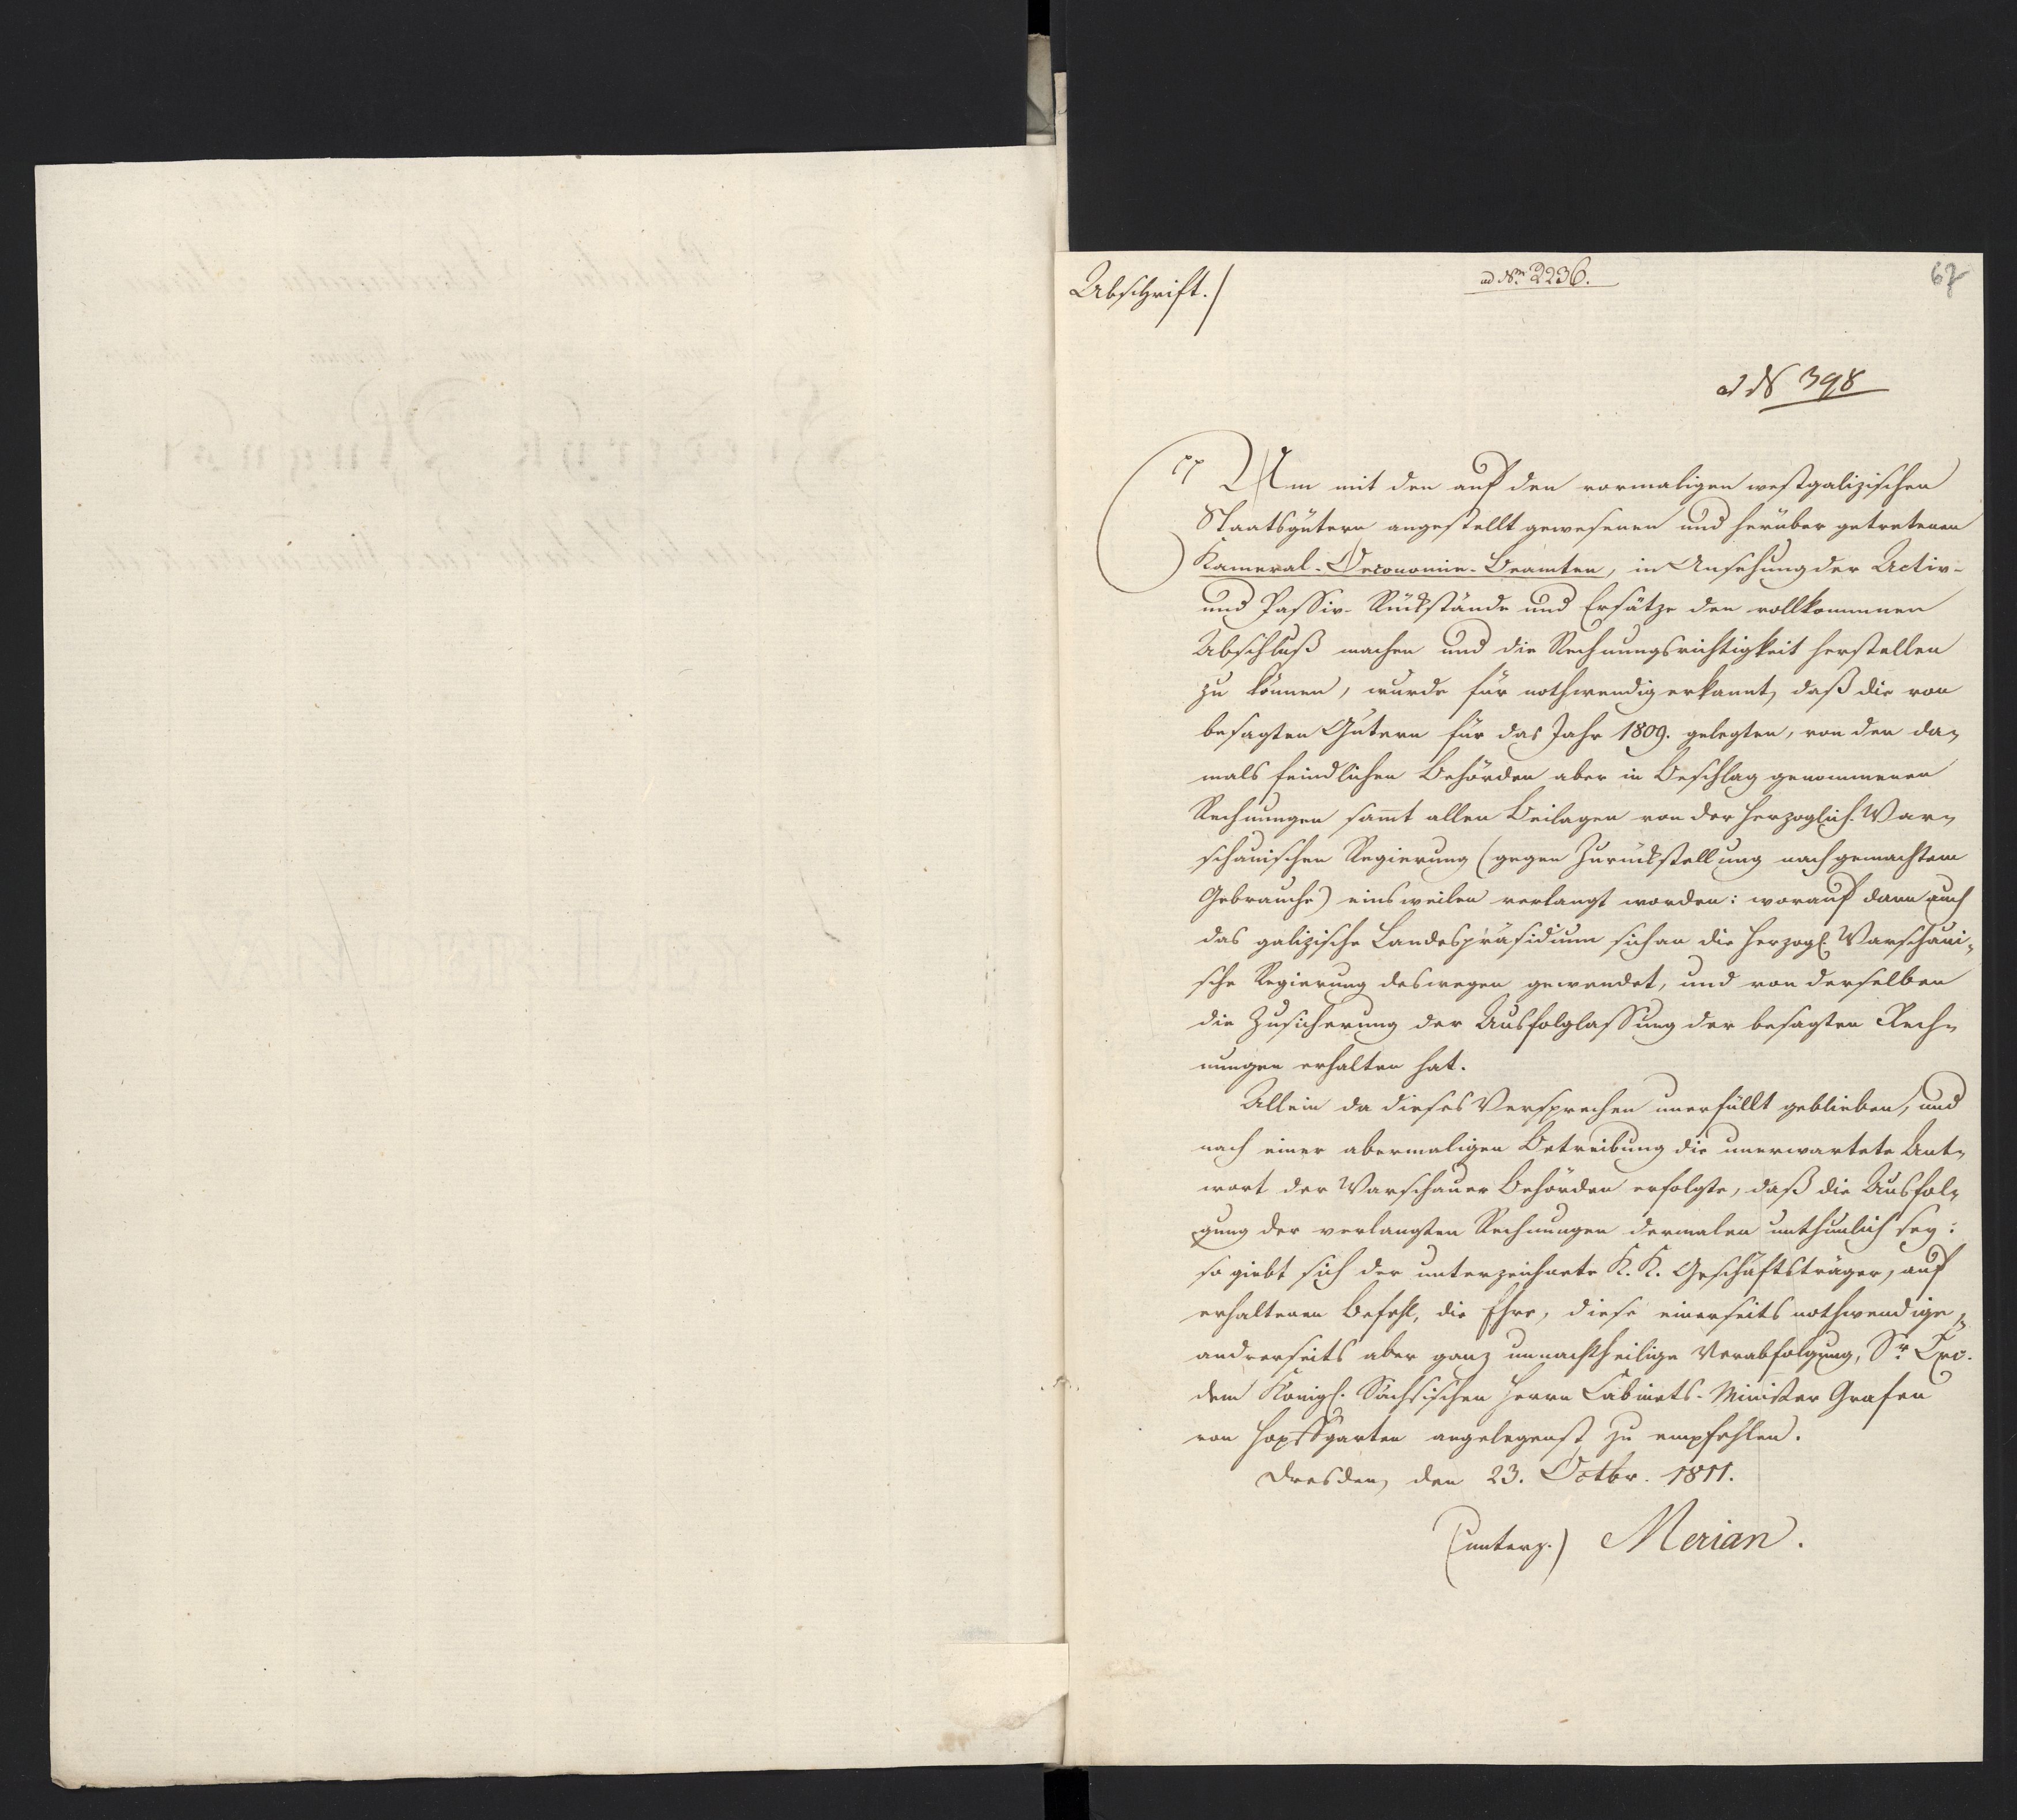 Abschrift./
ad Nr. 2236.
67
ad N 398
pp Um mit den auf den vormaligen westgalizischen
Staatsgütern angestellt gewesenen und herüber getretenen
Kameral-Oeconomie-Beamten, in Ansehung der Activ-
und Passiv-Rückstände und Ersätze den vollkommenen
Abschluß machen und die Rechnungsrichtigkeit herstellen
zu können, wurde für nothwendig erkannt, daß die von
besagten Gütern für das Jahr 1809. gelegten, von den da-
mals feindlichen Behörden aber in Beschlag genommenen
Rechnungen sam̅t allen Beilagen von der Herzoglich. War-
schauischen Regierung (gegen Zurückstellung nach gemachtem
Gebrauche) einsweilen verlangt worden: worauf dann auch
das galizische Landespräsidium sich an die Herzogl. Warschaui-
sche Regierung deswegen gewendet, und von derselben
die Zusicherung der Ausfolglassung der besagten Rech-
nungen erhalten hat.
Allein da dieses Versprechen unerfüllt geblieben, und
nach einer abermaligen Betreibung die unerwartete Ant-
wort der Warschauer Behörden erfolgte, daß die Ausfol-
gung der verlangten Rechnungen dermalen unthunlich sey:
so giebt sich der unterzeichnete K. K. Geschäftsträger, auf
erhaltenen Befehl, die Ehre, diese einerseits nothwendige,
andrerseits aber ganz unnachtheilige Verabfolgung, Sr. Exc.
dem Königl. Sächsischen Herrn Cabinets-Minister Grafen
von Hopffgarten angelegenst zu empfehlen.
Dresden, den 23. Octbr. 1811.
(unterz.) Merian.